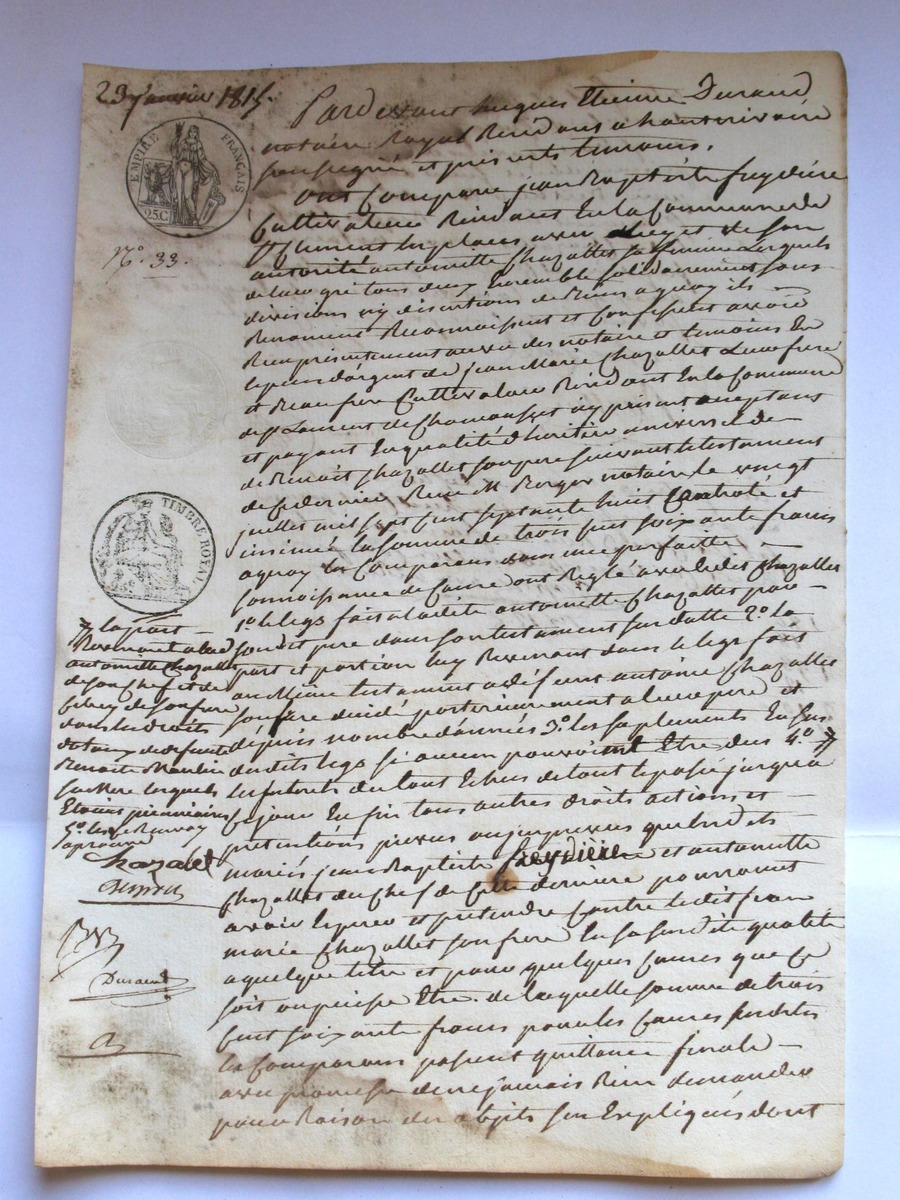 23 janvier 1815.
EMPIRE FRANÇAIS
25C
N.° 33.
TIMBRE ROYAL
25c
Pardevant hugues Etienne Durand
notaire Royal Residans a hauterivoire
soussigné et presents temoins.
Ont Comparu jean Baptiste freydiere
Cultivateur Residant En la Commune de
St Clement les places avec luy et de son
autorité antoinette Chazallet sa femme Lesquels
de leur gré tous deux Ensemble solidairement sans
divisions ny discutions de Biens a quoy ils
Renoncent Reconnaissent et Confessent avoir
Reçu présentement au vu des notaire et temoins En
especes d'argent de jean Marie Chazallet Leur frere
et Beau frere Cultivateur Residant En la Commune
de St Laurent de Chamousset icy présent acceptant
et payant En qualité d'heritier universel de
Benoit Chazallet son pere suivant le testament
de ce dernier Reçu M Berger notaire le vingt
juillet mil sept Cent septante huit Controlé et
insinué la somme de trois Cent soixante francs
a quoy les Comparans dans une parfaitte
Connoissance de Cause ont Reglé avec ledit Chazallet
1° le legs fait a ladite antoinette Chazallet par
sondit pere dans son testament sus datté 2° la
part et portion luy Revenant dans le legs fait
au Meme testament a defunt antoine Chazallet
son frere decedé posterieurement a leur pere et
depuis nombre d'années 3° les suplements En sus
desdits legs si aucun pouvoient Etre dus 4°
les interets du tout Echus de tout le passé jusqu'a
Ce jour En fin tous autres droits actions et
pretentions prevus ou imprevus que lesdits
mariés jean Baptiste freydière et antoinette
Chazallet du Chef de Cette derniere pourroient
avoir Esperer et pretendre Contre ledit jean
marie Chazallet son frere En sa susdite qualité
a quelque titre et pour quelques Causes que Ce
soit ou puisse Etre. de laquelle somme de trois
Cent soixante francs pour les Causes susdites
les Comparans passent quittance finale
avec promesse de ne jamais Rien demander
pour Raison des objets sus Expliqués dont
la part
Revenant a lad
antoinette Chazallet
de son Chef et de
Celuy de son frere
dans les droits
de defunte
Benoite Moulin
sa Mere lesquels
Etoient
5° les Renvoy
aprouvé
Chazalet
Durand